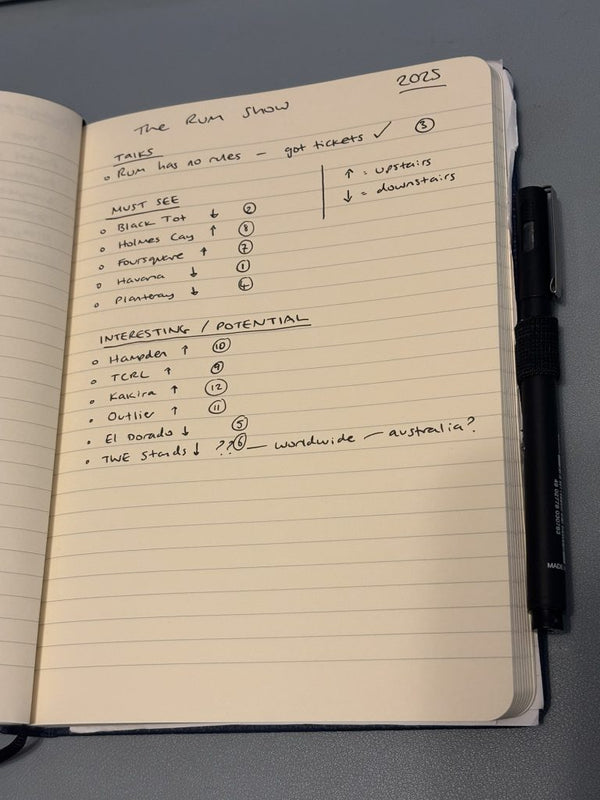 2025
The Rum Show
TALKS
• Rum has no rules — got tickets ✓ ③
↑ = upstairs
↓ = downstairs
MUST SEE
• Black Tot ↓ ②
• Holmes Cay ↑ ⑧
• Foursquare ↑ ⑦
• Havana ↓ ①
• Planteray ↓ ④
INTERESTING / POTENTIAL
• Hampden ↑ ⑩
• TCRL ↑ ⑨
• Kakira ↑ ⑫
• Outlier ↑ ⑪
• El Dorado ↓ ⑤
• TWE Stands ↓ ?? ⑥ — worldwide — australia?
MADE